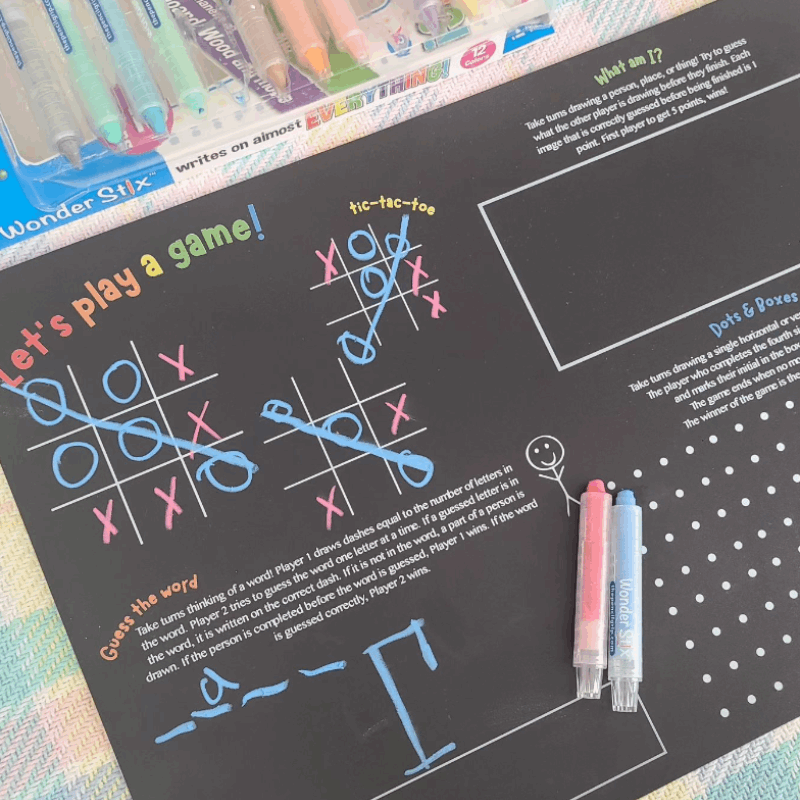 12
Colors
writes on almost EVERYTHING!
Wonder Stix™
Let's play a game!
tic-tac-toe
What am I?
Take turns drawing a person, place, or thing! Try to guess
what the other player is drawing before they finish. Each
image that is correctly guessed before being finished is 1
point. First player to get 5 points, wins!
Dots & Boxes
Take turns drawing a single horizontal or
The player who completes the fourth
and marks their initial in the
The game ends when no
The winner of the game is the
Guess the word
Take turns thinking of a word! Player 1 draws dashes equal to the number of letters in
the word. Player 2 tries to guess the word one letter at a time. If a guessed letter is in
the word, it is written on the correct dash. If it is not in the word, a part of a person is
drawn. If the person is completed before the word is guessed, Player 1 wins. If the word
is guessed correctly, Player 2 wins.
O O X
O O X
X X O
X O O
O X
O X
O X
O
X O
a
Wonder Stix